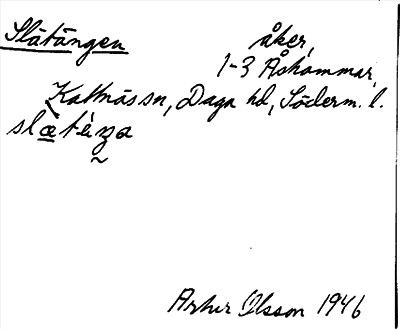 Slätängen åker,
1-3 Åshammar,
Kattnäs sn, Daga hd, Söderm. l.
slæ̀téŋa
Artur Olsson 1946